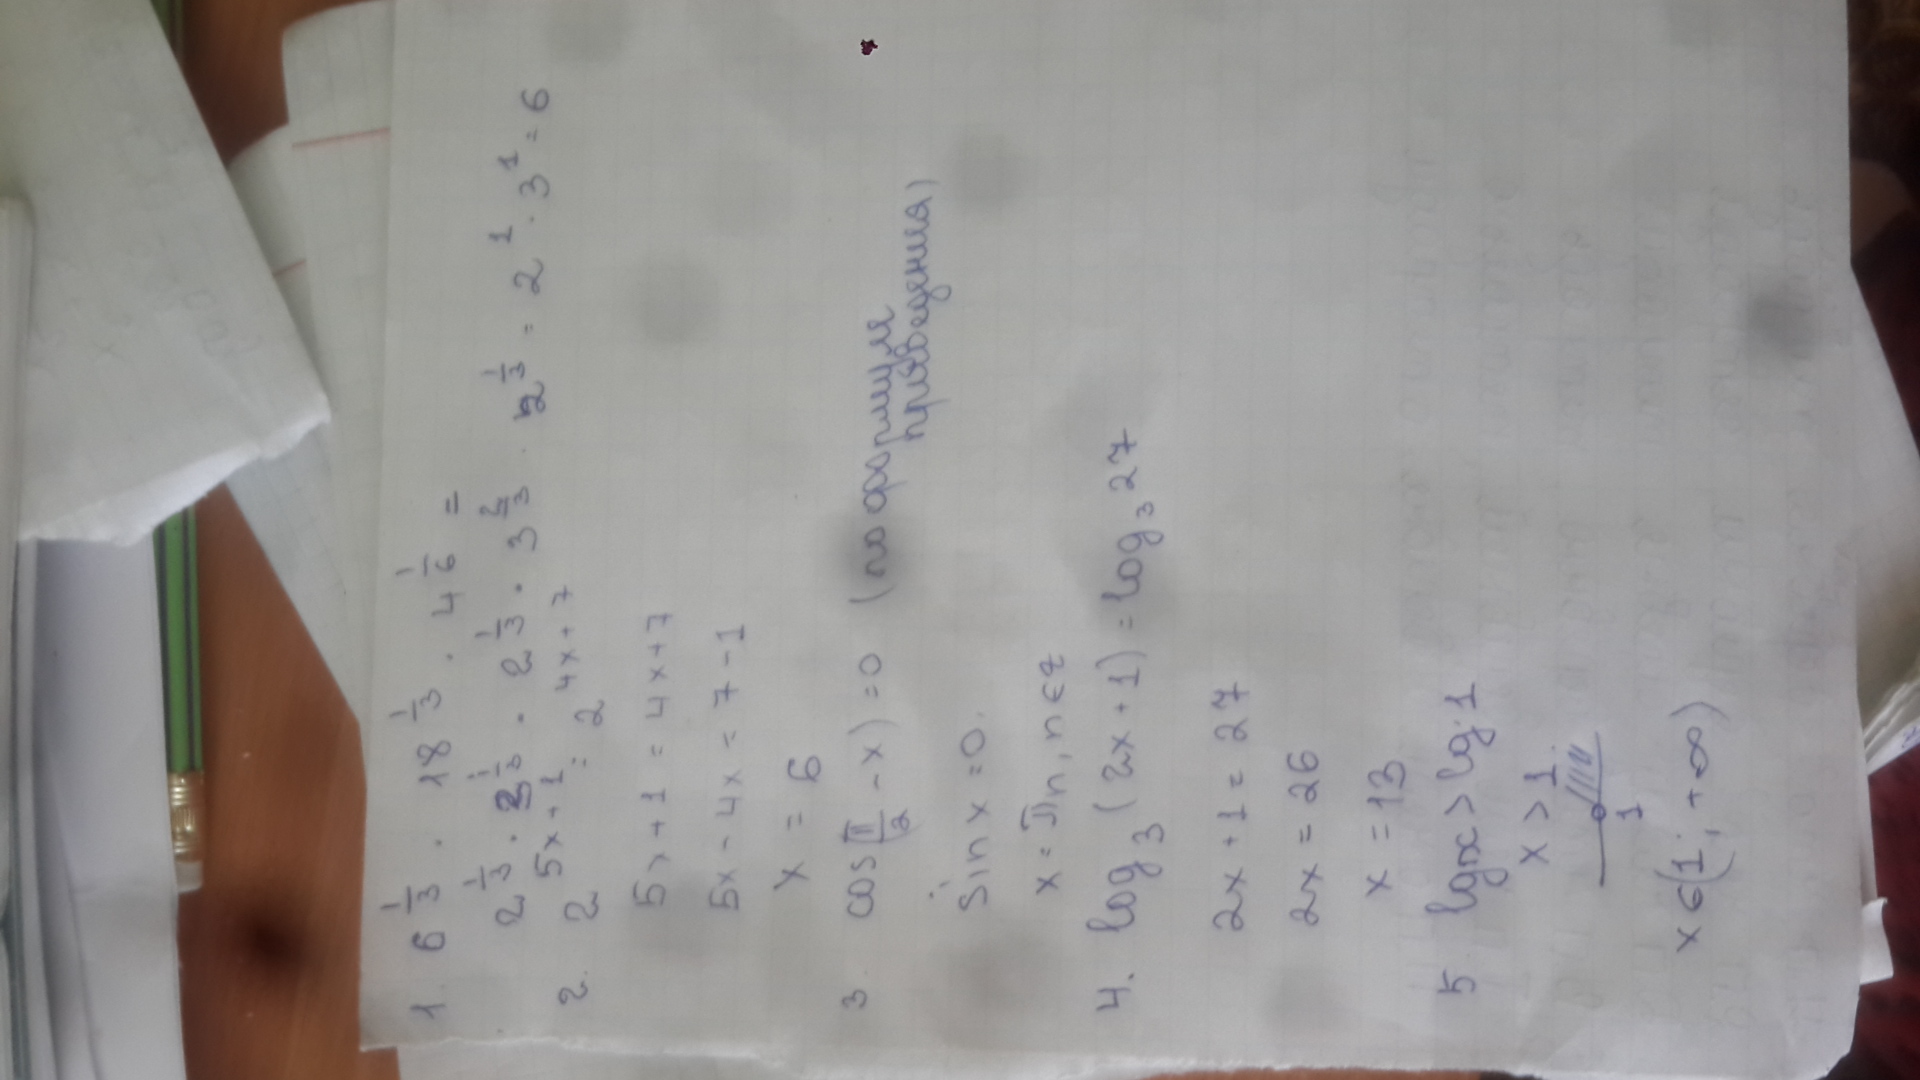 1. 6^(1/3) · 18^(1/3) · 4^(1/6) =
2^(1/3) · 3^(1/3) · 2^(1/3) · 3^(2/3) · 2^(1/3) = 2^1 · 3^1 = 6
2. 2^(5x+1) = 2^(4x+7)
5x+1 = 4x+7
5x - 4x = 7 - 1
x = 6
3 cos(π/2 - x) = 0 (по формуле
приведения)
sin x = 0.
x = πn, n ∈ z
4. log₃(2x+1) = log₃27
2x+1 = 27
2x = 26
x = 13
5 lgx > lg1
x > 1
1
x ∈ (1; +∞)